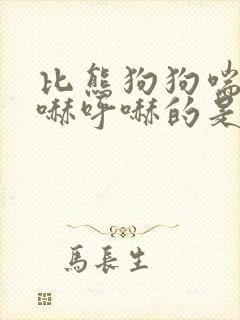 比熊狗狗喘
嚇呼嚇的是
馬長生